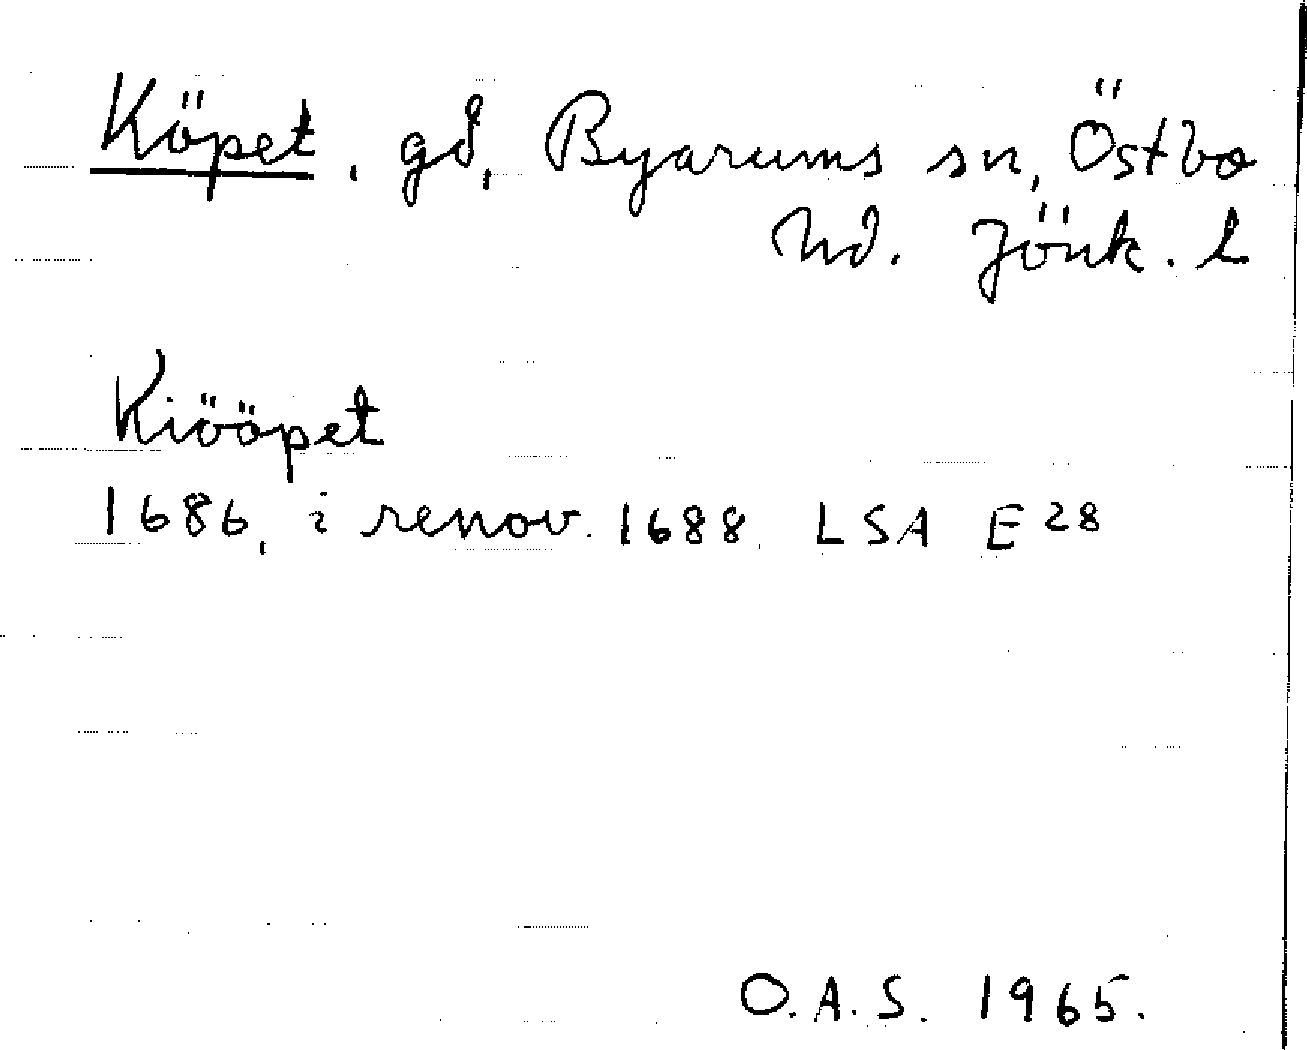 Köpet, gd, Byarums sn, Östbo
hd. Jönk. l
Kiööpet
1686, i renov. 1688. LSA E 28
O.A.S. 1965.